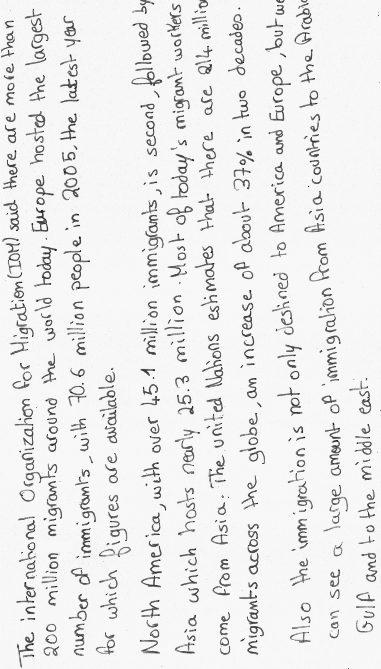 The international Organization for Migration (IOM) said there are more than
200 million migrants around the world today. Europe hosted the largest
number of immigrants, with 70.6 million people in 2005, the latest year
for which figures are available.
North America, with over 45.1 million immigrants, is second, followed by
Asia which hosts nearly 25.3 million. Most of today's migrant workers
come from Asia. The united Nations estimates that there are 214 millio
migrants across the globe, an increase of about 37% in two decades.
Also the immigration is not only destined to America and Europe, but we
can see a large amount of immigration from Asia countries to the Arabia
Gulf and to the middle east.